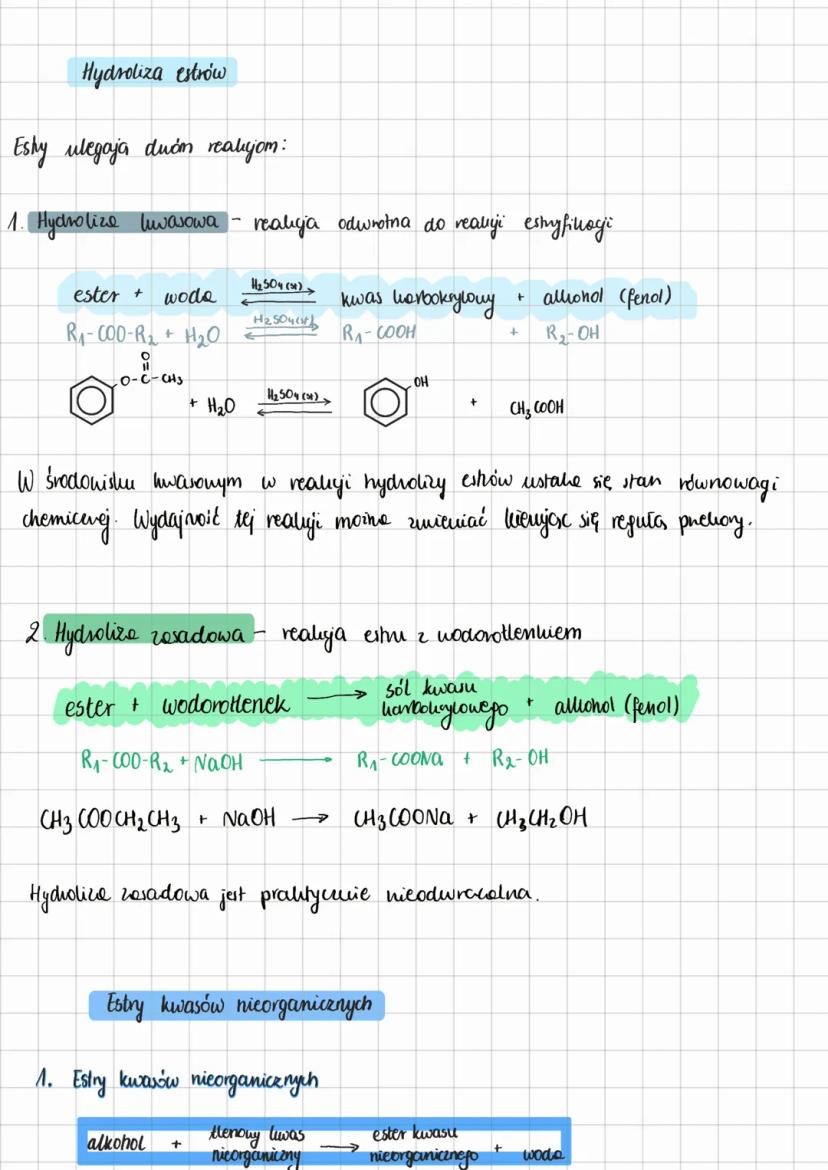 Hydroliza estrów
Estry ulegają dwóm reakcjom:
1. Hydroliza kwasowa - reakcja odwrotna do reakcji estryfikacji
ester + woda H₂SO₄(st) ⇄ kwas karboksylowy + alkohol (fenol)
R₁-COO-R₂ + H₂O H₂SO₄(st) ⇄ R₁-COOH + R₂-OH
O
O-C-CH₃ OH
+ H₂O H₂SO₄(st) ⇄ + CH₃COOH
W środowisku kwasowym w reakcji hydrolizy estrów ustala się stan równowagi
chemicznej. Wydajność tej reakcji można zmieniać kierując się regułą przekory.
2. Hydroliza zasadowa - reakcja estru z wodorotlenkiem
ester + wodorotlenek → sól kwasu karboksylowego + alkohol (fenol)
R₁-COO-R₂ + NaOH → R₁-COONa + R₂-OH
CH₃COOCH₂CH₃ + NaOH → CH₃COONa + CH₃CH₂OH
Hydroliza zasadowa jest praktycznie nieodwracalna.
Estry kwasów nieorganicznych
1. Estry kwasów nieorganicznych
alkohol + tlenowy kwas nieorganiczny → ester kwasu nieorganicznego + woda